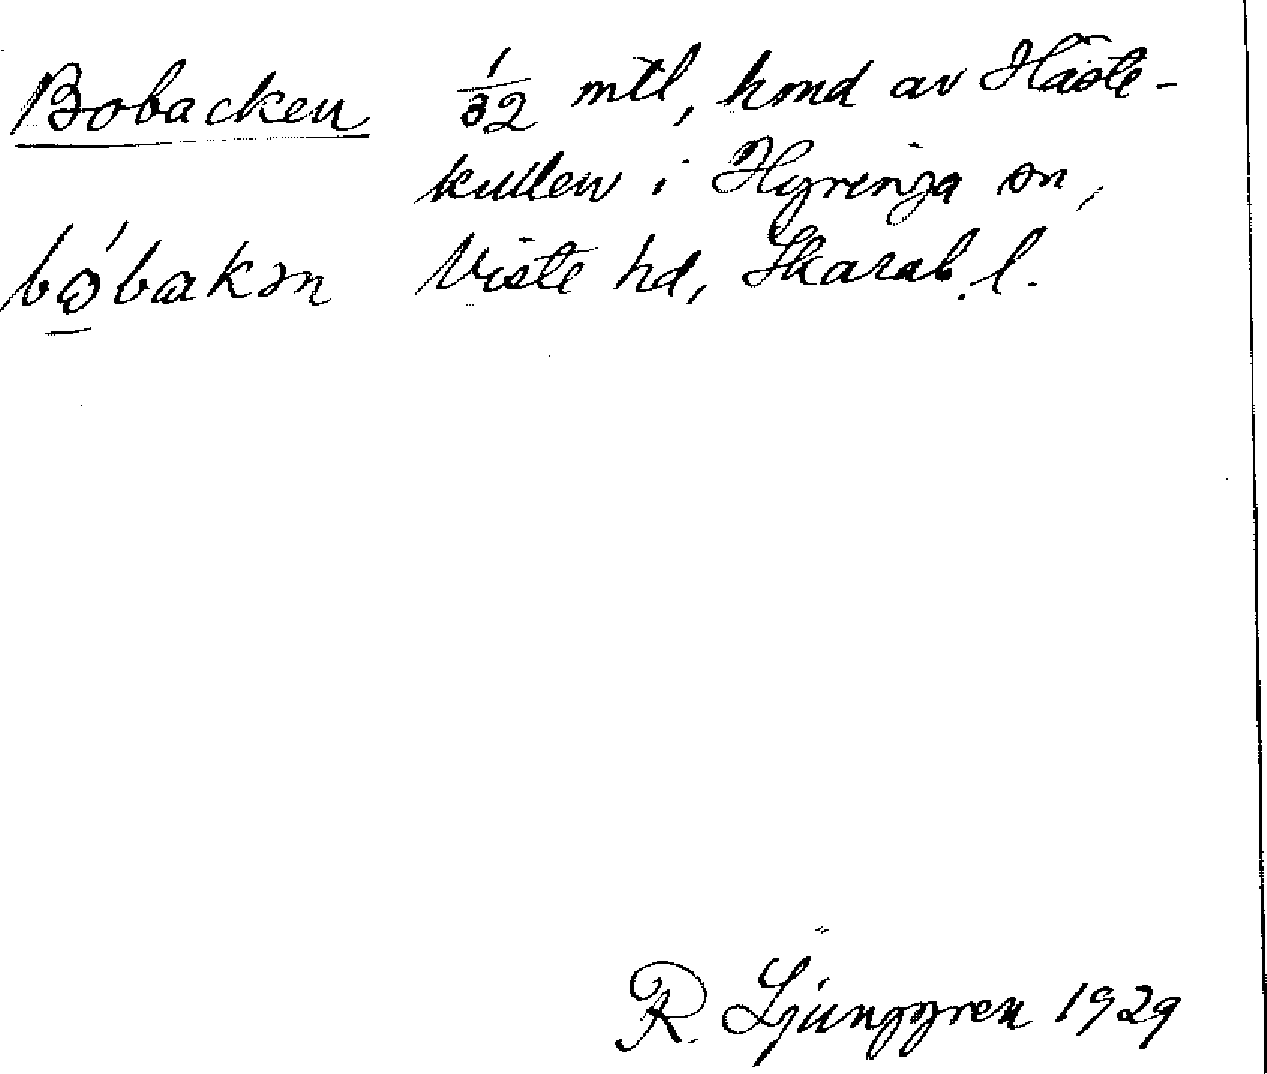 Bobacken 1/32 mtl, hmd av Häste-
kullen i Hyringa sn,
bo̱´bakən Viste hd, Skarab. l.
R. Ljunggren 1929